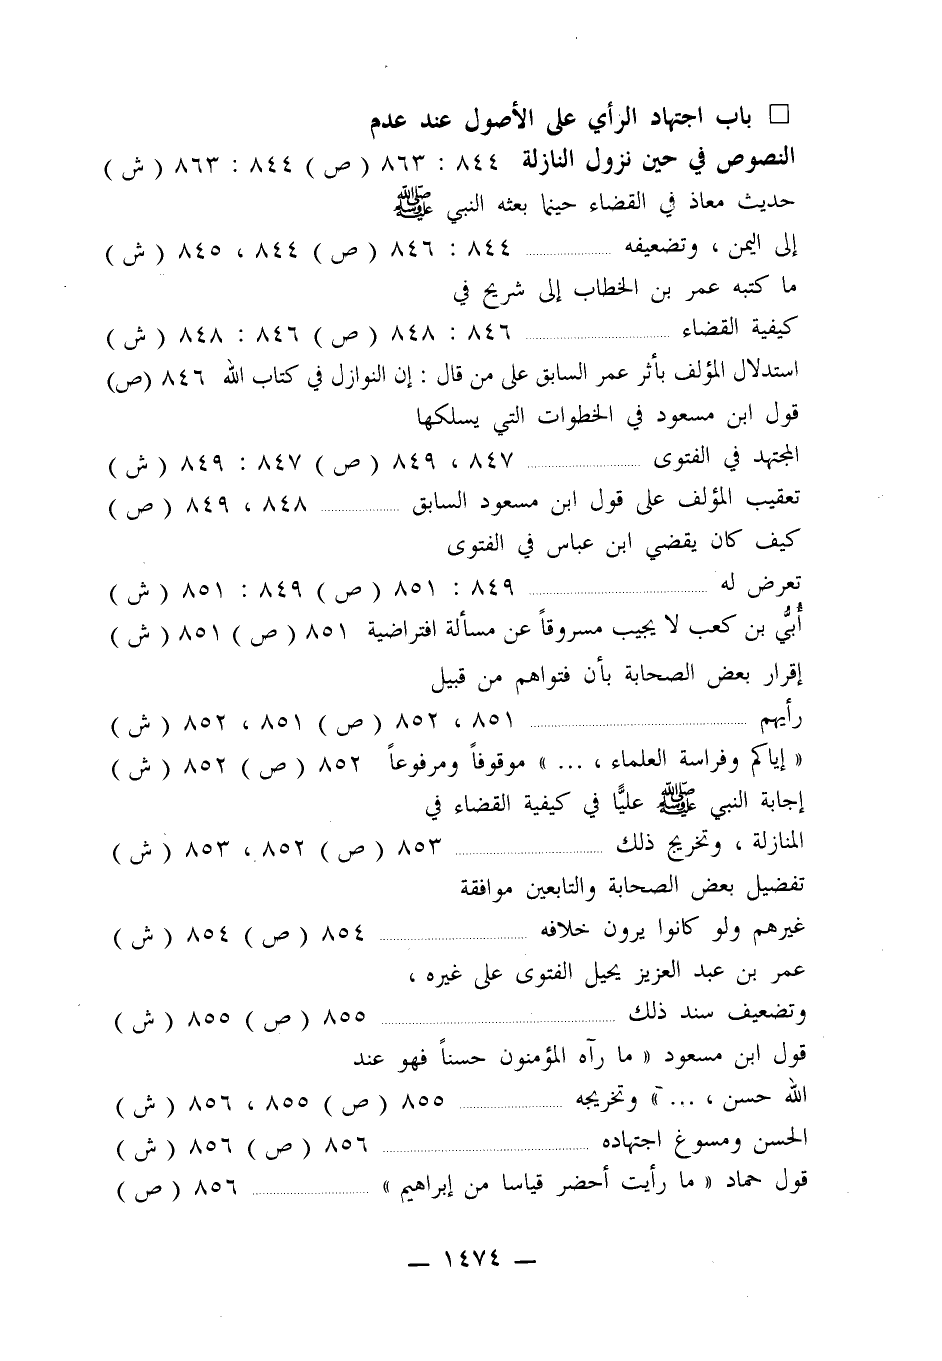 □ باب اجتهاد الرأي على الأصول عند عدم
النصوص في حين نزول النازلة ٨٤٤ : ٨٦٣ ( ص ) ٨٤٤ : ٨٦٣ ( ش )
حديث معاذ في القضاء حينما بعثه النبي ﷺ
إلى اليمن ، وتضعيفه ........ ٨٤٤ : ٨٤٦ ( ص ) ٨٤٤ ، ٨٤٥ ( ش )
ما كتبه عمر بن الخطاب إلى شريح في
كيفية القضاء ........ ٨٤٦ : ٨٤٨ ( ص ) ٨٤٦ : ٨٤٨ ( ش )
استدلال المؤلف بأثر عمر السابق على من قال : إن النوازل في كتاب الله ٨٤٦ (ص)
قول ابن مسعود في الخطوات التي يسلكها
المجتهد في الفتوى ........ ٨٤٧ ، ٨٤٩ ( ص ) ٨٤٧ : ٨٤٩ ( ش )
تعقيب المؤلف على قول ابن مسعود السابق ........ ٨٤٨ ، ٨٤٩ ( ص )
كيف كان يقضي ابن عباس في الفتوى
تعرض له ........ ٨٤٩ : ٨٥١ ( ص ) ٨٤٩ : ٨٥١ ( ش )
أُبيُّ بن كعب لا يجيب مسروقاً عن مسألة افتراضية ٨٥١ ( ص ) ٨٥١ ( ش )
إقرار بعض الصحابة بأن فتواهم من قبيل
رأيهم ........ ٨٥١ ، ٨٥٢ ( ص ) ٨٥١ ، ٨٥٢ ( ش )
« إياكم وفراسة العلماء ، ... » موقوفاً ومرفوعاً ٨٥٢ ( ص ) ٨٥٢ ( ش )
إجابة النبي ﷺ عليًّا في كيفية القضاء في
المنازلة ، وتخريج ذلك ........ ٨٥٣ ( ص ) ٨٥٢ ، ٨٥٣ ( ش )
تفضيل بعض الصحابة والتابعين موافقة
غيرهم ولو كانوا يرون خلافه ........ ٨٥٤ ( ص ) ٨٥٤ ( ش )
عمر بن عبد العزيز يحيل الفتوى على غيره ،
وتضعيف سند ذلك ........ ٨٥٥ ( ص ) ٨٥٥ ( ش )
قول ابن مسعود « ما رآه المؤمنون حسناً فهو عند
الله حسن ، ... » وتخريجه ........ ٨٥٥ ( ص ) ٨٥٥ ، ٨٥٦ ( ش )
الحسن ومسوغ اجتهاده ........ ٨٥٦ ( ص ) ٨٥٦ ( ش )
قول حماد « ما رأيت أحضر قياسا من إبراهيم » ........ ٨٥٦ ( ص )
— ١٤٧٤ —